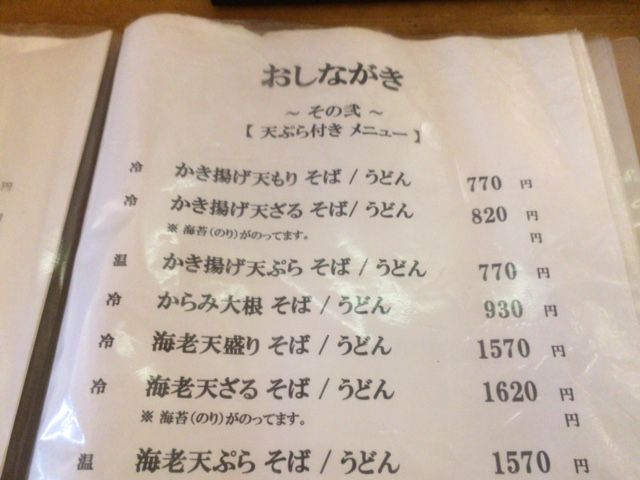 おしながき
～ その弐 ～
【 天ぷら付き メニュー 】
冷 かき揚げ天もり そば / うどん 770 円
冷 かき揚げ天ざる そば/ うどん 820 円
※ 海苔（のり）がのってます。 円
温 かき揚げ天ぷら そば / うどん 770 円
冷 からみ大根 そば / うどん 930 円
冷 海老天盛り そば / うどん 1570 円
冷 海老天ざる そば / うどん 1620 円
※ 海苔（のり）がのってます。 円
温 海老天ぷら そば / うどん 1570 円
円
円